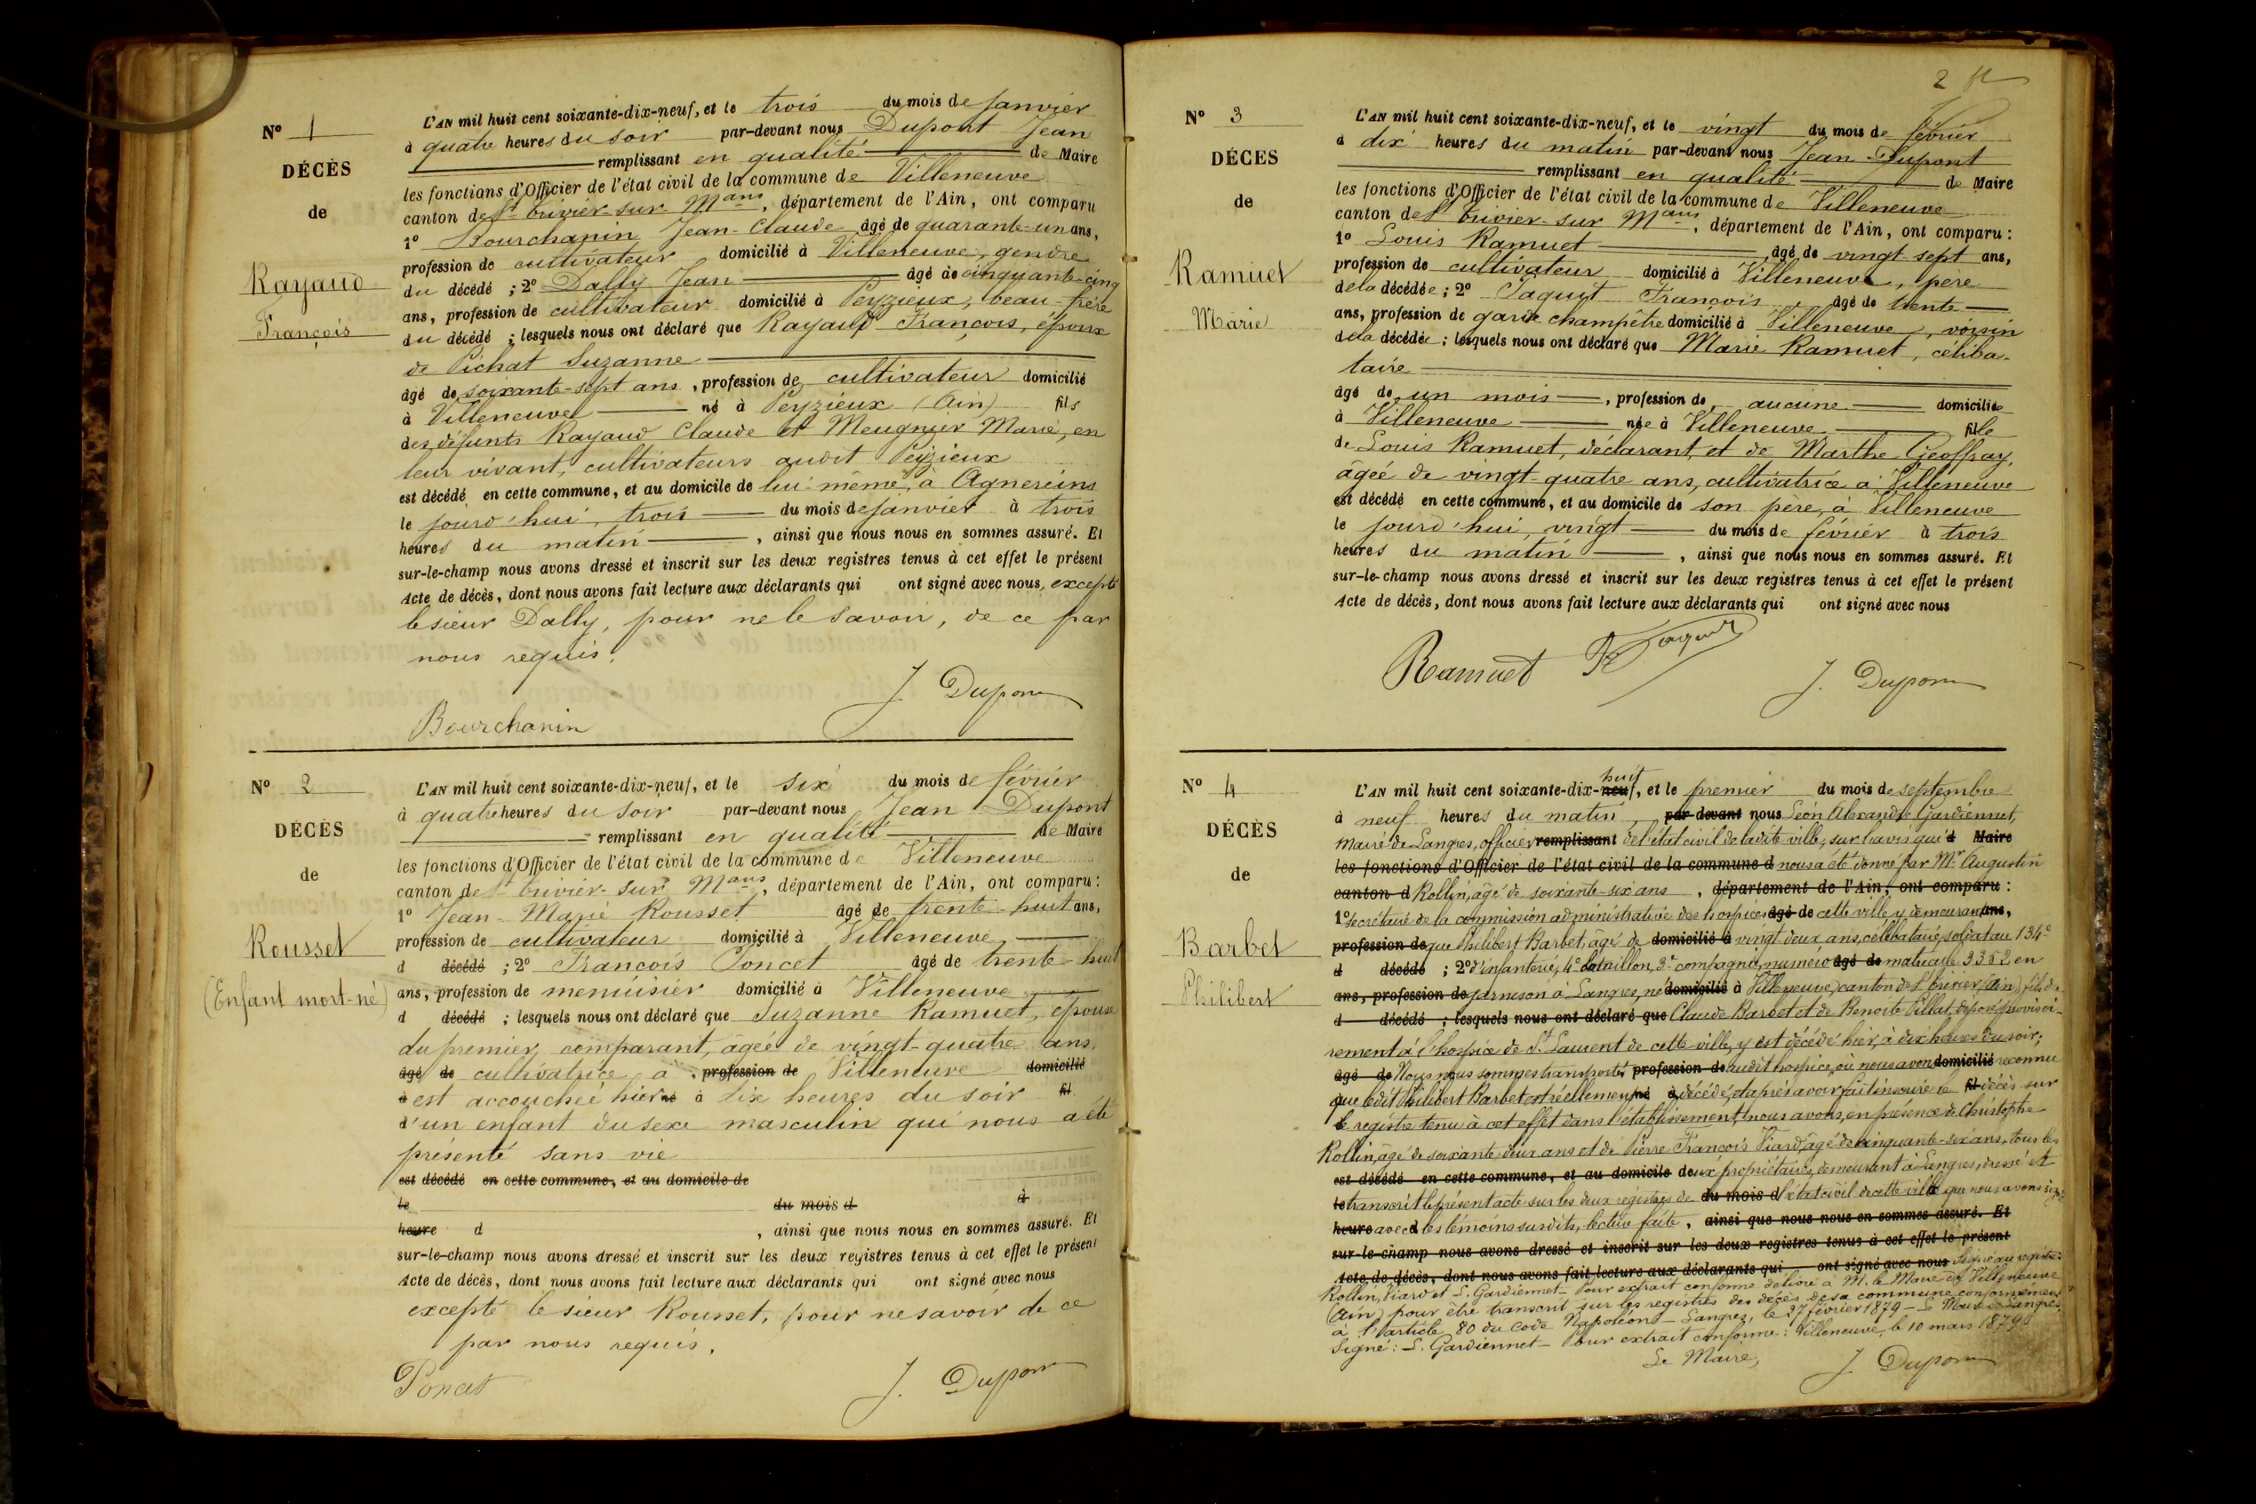 Nº 1
DÉCÈS
de
Rayaud
François
L'AN mil huit cent soixante-dix-neuf, et le trois du mois de Janvier
à quatre heures du soir par-devant nous Dupont Jean
remplissant en qualité de Maire
les fonctions d'Officier de l'état civil de la commune de Villeneuve
canton de St trivier-sur Mans, département de l'Ain, ont comparu
1º Bourchanin Jean-Claude âgé de quarante-un ans,
profession de cultivateur domicilié à Villeneuve, gendre
du décédé ; 2º Dally Jean âgé de cinquante-cinq
ans, profession de cultivateur domicilié à Peyzieux, beau-frère
du décédé ; lesquels nous ont déclaré que Rayaud François, époux
de Pichat Suzanne
âgé de soixante-sept ans, profession de cultivateur domicilié
à Villeneuve né à Peyzieux (Ain) fils
des défunts Rayaud Claude et Meugnier Marie, en
leur vivant, cultivateurs audit Peyzieux
est décédé en cette commune, et au domicile de lui-même, à Agnereins
le jourd'hui, trois du mois de janvier à trois
heures du matin, ainsi que nous nous en sommes assuré. Et
sur-le-champ nous avons dressé et inscrit sur les deux registres tenus à cet effet le présent
Acte de décès, dont nous avons fait lecture aux déclarants qui ont signé avec nous, excepté
le sieur Dally, pour ne le savoir, de ce par
nous requis.
J. Dupont
Bourchanin
Nº 2
DÉCÈS
de
Rousset
(Enfant mort-né)
L'AN mil huit cent soixante-dix-neuf, et le six du mois de février
à quatre heures du soir par-devant nous Jean Dupont
remplissant en qualité de Maire
les fonctions d'Officier de l'état civil de la commune de Villeneuve
canton de St trivier-sur Mans, département de l'Ain, ont comparu :
1º Jean-Marie Rousset âgé de trente-huit ans,
profession de cultivateur domicilié à Villeneuve
d décédé ; 2º François Poncet âgé de trente-huit
ans, profession de menuisier domicilié à Villeneuve
d décédé ; lesquels nous ont déclaré que Suzanne Ramuet, épouse
du premier comparant, âgée de vingt-quatre ans,
âgé de cultivatrice à profession de Villeneuve domicilié
à est accouchée hier né à dix heures du soir fil
d'un enfant du sexe masculin qui nous a été
présenté sans vie
est décédé en cette commune, et au domicile de
le du mois d à
heure d, ainsi que nous nous en sommes assuré. Et
sur-le-champ nous avons dressé et inscrit sur les deux registres tenus à cet effet le présent
Acte de décès, dont nous avons fait lecture aux déclarants qui ont signé avec nous
excepté le sieur Rousset, pour ne savoir de ce
par nous requis.
Poncet J. Dupont
2
Nº 3
DÉCES
de
Ramuet
Marie
L'AN mil huit cent soixante-dix-neuf, et le vingt du mois de février
à dix heures du matin par-devant nous Jean Dupont
remplissant en qualité de Maire
les fonctions d'Officier de l'état civil de la commune de Villeneuve
canton de St trivier-sur Mans, département de l'Ain, ont comparu :
1º Louis Ramuet âgé de vingt sept ans,
profession de cultivateur domicilié à Villeneuve, père
de la décédée ; 2º Jaquet François, âgé de trente
ans, profession de garde champêtre domicilié à Villeneuve, voisin
de la décédée ; lesquels nous ont déclaré que Marie Ramuet, céliba-
taire
âgé de un mois, profession de aucune domiciliée
à Villeneuve née à Villeneuve fille
de Louis Ramuet, déclarant, et de Marthe Geoffray,
âgée de vingt-quatre ans, cultivatrice à Villeneuve
est décédé en cette commune, et au domicile de son père, à Villeneuve
le jourd'hui, vingt du mois de février à trois
heures du matin, ainsi que nous nous en sommes assuré. Et
sur-le-champ nous avons dressé et inscrit sur les deux registres tenus à cet effet le présent
Acte de décès, dont nous avons fait lecture aux déclarants qui ont signé avec nous
Ramuet
J. Dupont
Nº 4
DÉCÈS
de
Barbet
Philibert
huit
L'AN mil huit cent soixante-dix-neuf, et le premier du mois de septembre
à neuf heures du matin, par-devant nous Léon Alexandre Gardiennet,
Maire de Langres, officier remplissant de l'état civil de ladite ville, sur l'avis qui d Maire
les fonctions d'Officier de l'état civil de la commune d nous a été donné par Mr Augustin
canton d Rollin, âgé de soixante-six ans, département de l'Ain, ont comparu :
1º secrétaire de la commission administrative des hospices âgé de cette ville, y demeurant ans,
profession de que Philibert Barbet, âgé de domicilié à vingt deux ans, célibataire, soldat au 134e
d décédé ; 2º d'infanterie, 4e bataillon, 3e compagnie, numéro âgé de matricule 3352 en
ans, profession de garnison à Langres, né domicilié à Villeneuve, canton de St trivier (Ain) fils de
d décédé ; lesquels nous ont déclaré que Claude Barbet et de Benoite Pillat, déposé provisoi-
rement à l'hospice de St Laurent de cette ville, y est décédé hier, à dix heures du soir ;
âgé de Nous nous sommes transporté profession de audit hospice, où nous avons domicilié reconnu
que ledit Philibert Barbet est réellement né à décédé, et après avoir fait inscrire le fil décès sur
le registre tenu à cet effet dans l'établissement, nous avons, en présence de Christophe
Rollin, âgé de soixante deux ans et de Pierre François Viard, âgé de cinquante-six ans, tous les
est décédé en cette commune, et au domicile deux propriétaires, demeurant à Langres, dressé et
le transcrit le présent acte sur les deux registres de du mois d l'état civil de cette ville que nous avons signé
heure avec d les témoins susdits, lecture faite, ainsi que nous nous en sommes assuré. Et
sur-le-champ nous avons dressé et inscrit sur les deux registres tenus à cet effet le présent
Acte de décès, dont nous avons fait lecture aux déclarants qui ont signé avec nous Signé au registre :
Rollin, Viard et L. Gardiennet - Pour extrait conforme délivré à M. le Maire de Villeneuve
(Ain) pour être transcrit sur les registres des décès de sa commune conformément
à l'article 80 du Code Napoléon - Langres, le 27 février 1879 - Le Maire de Langres
Signé : L. Gardiennet - Pour extrait conforme : Villeneuve, le 10 mars 1879
Le Maire, J. Dupont